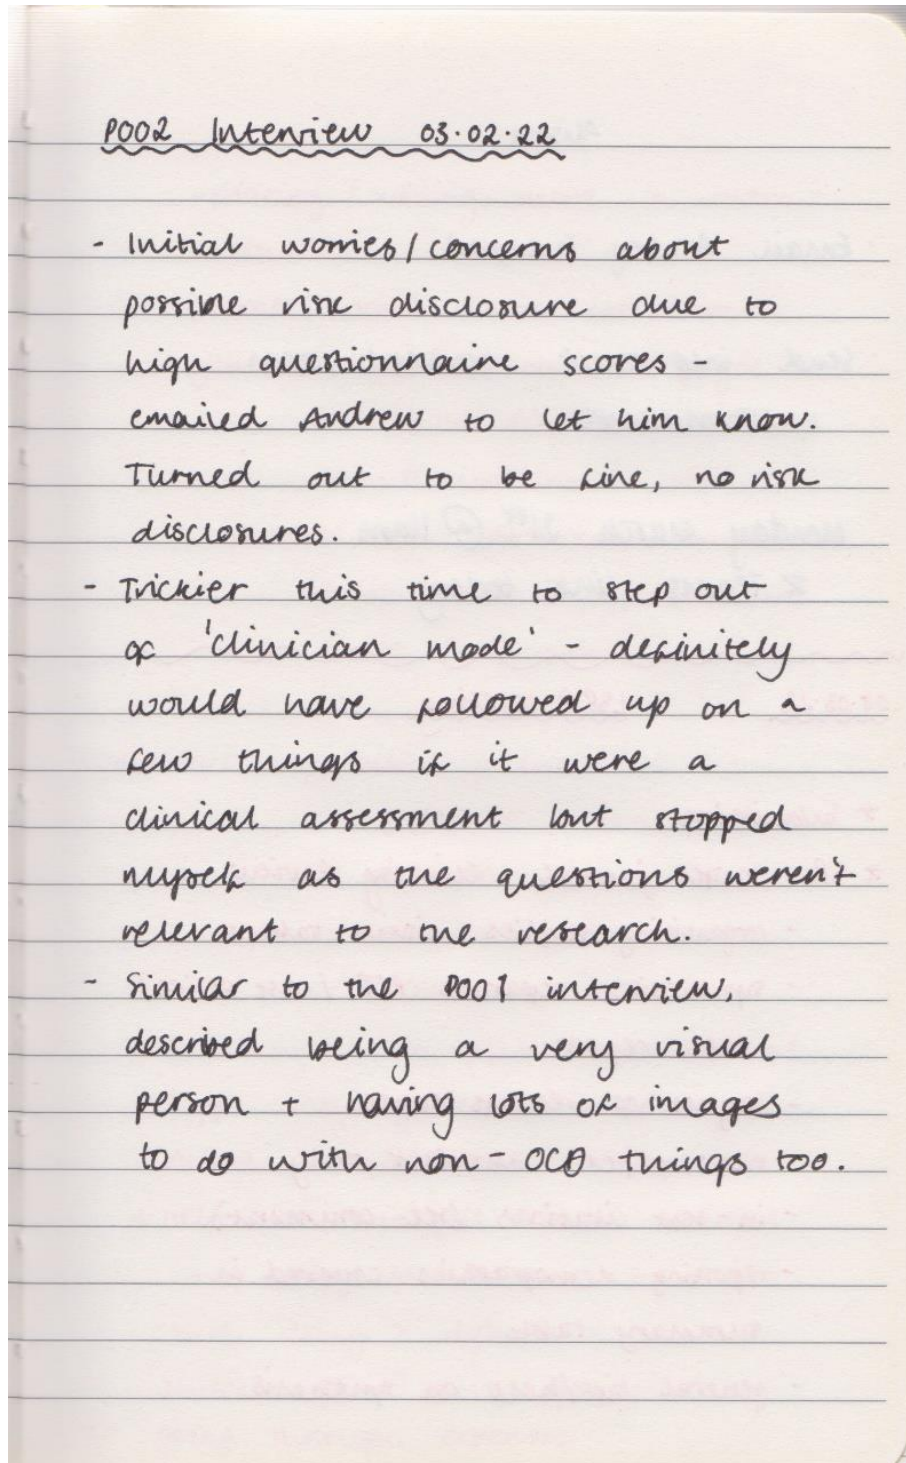 P002 Interview 03.02.22
- Initial worries/concerns about
possible risk disclosure due to
high questionnaire scores -
emailed Andrew to let him know.
Turned out to be fine, no risk
disclosures.
- Trickier this time to step out
of 'clinician mode' - definitely
would have followed up on a
few things if it were a
clinical assessment but stopped
myself as the questions weren't
relevant to the research.
- Similar to the P001 interview,
described being a very visual
person + having lots of images
to do with non-OCD things too.